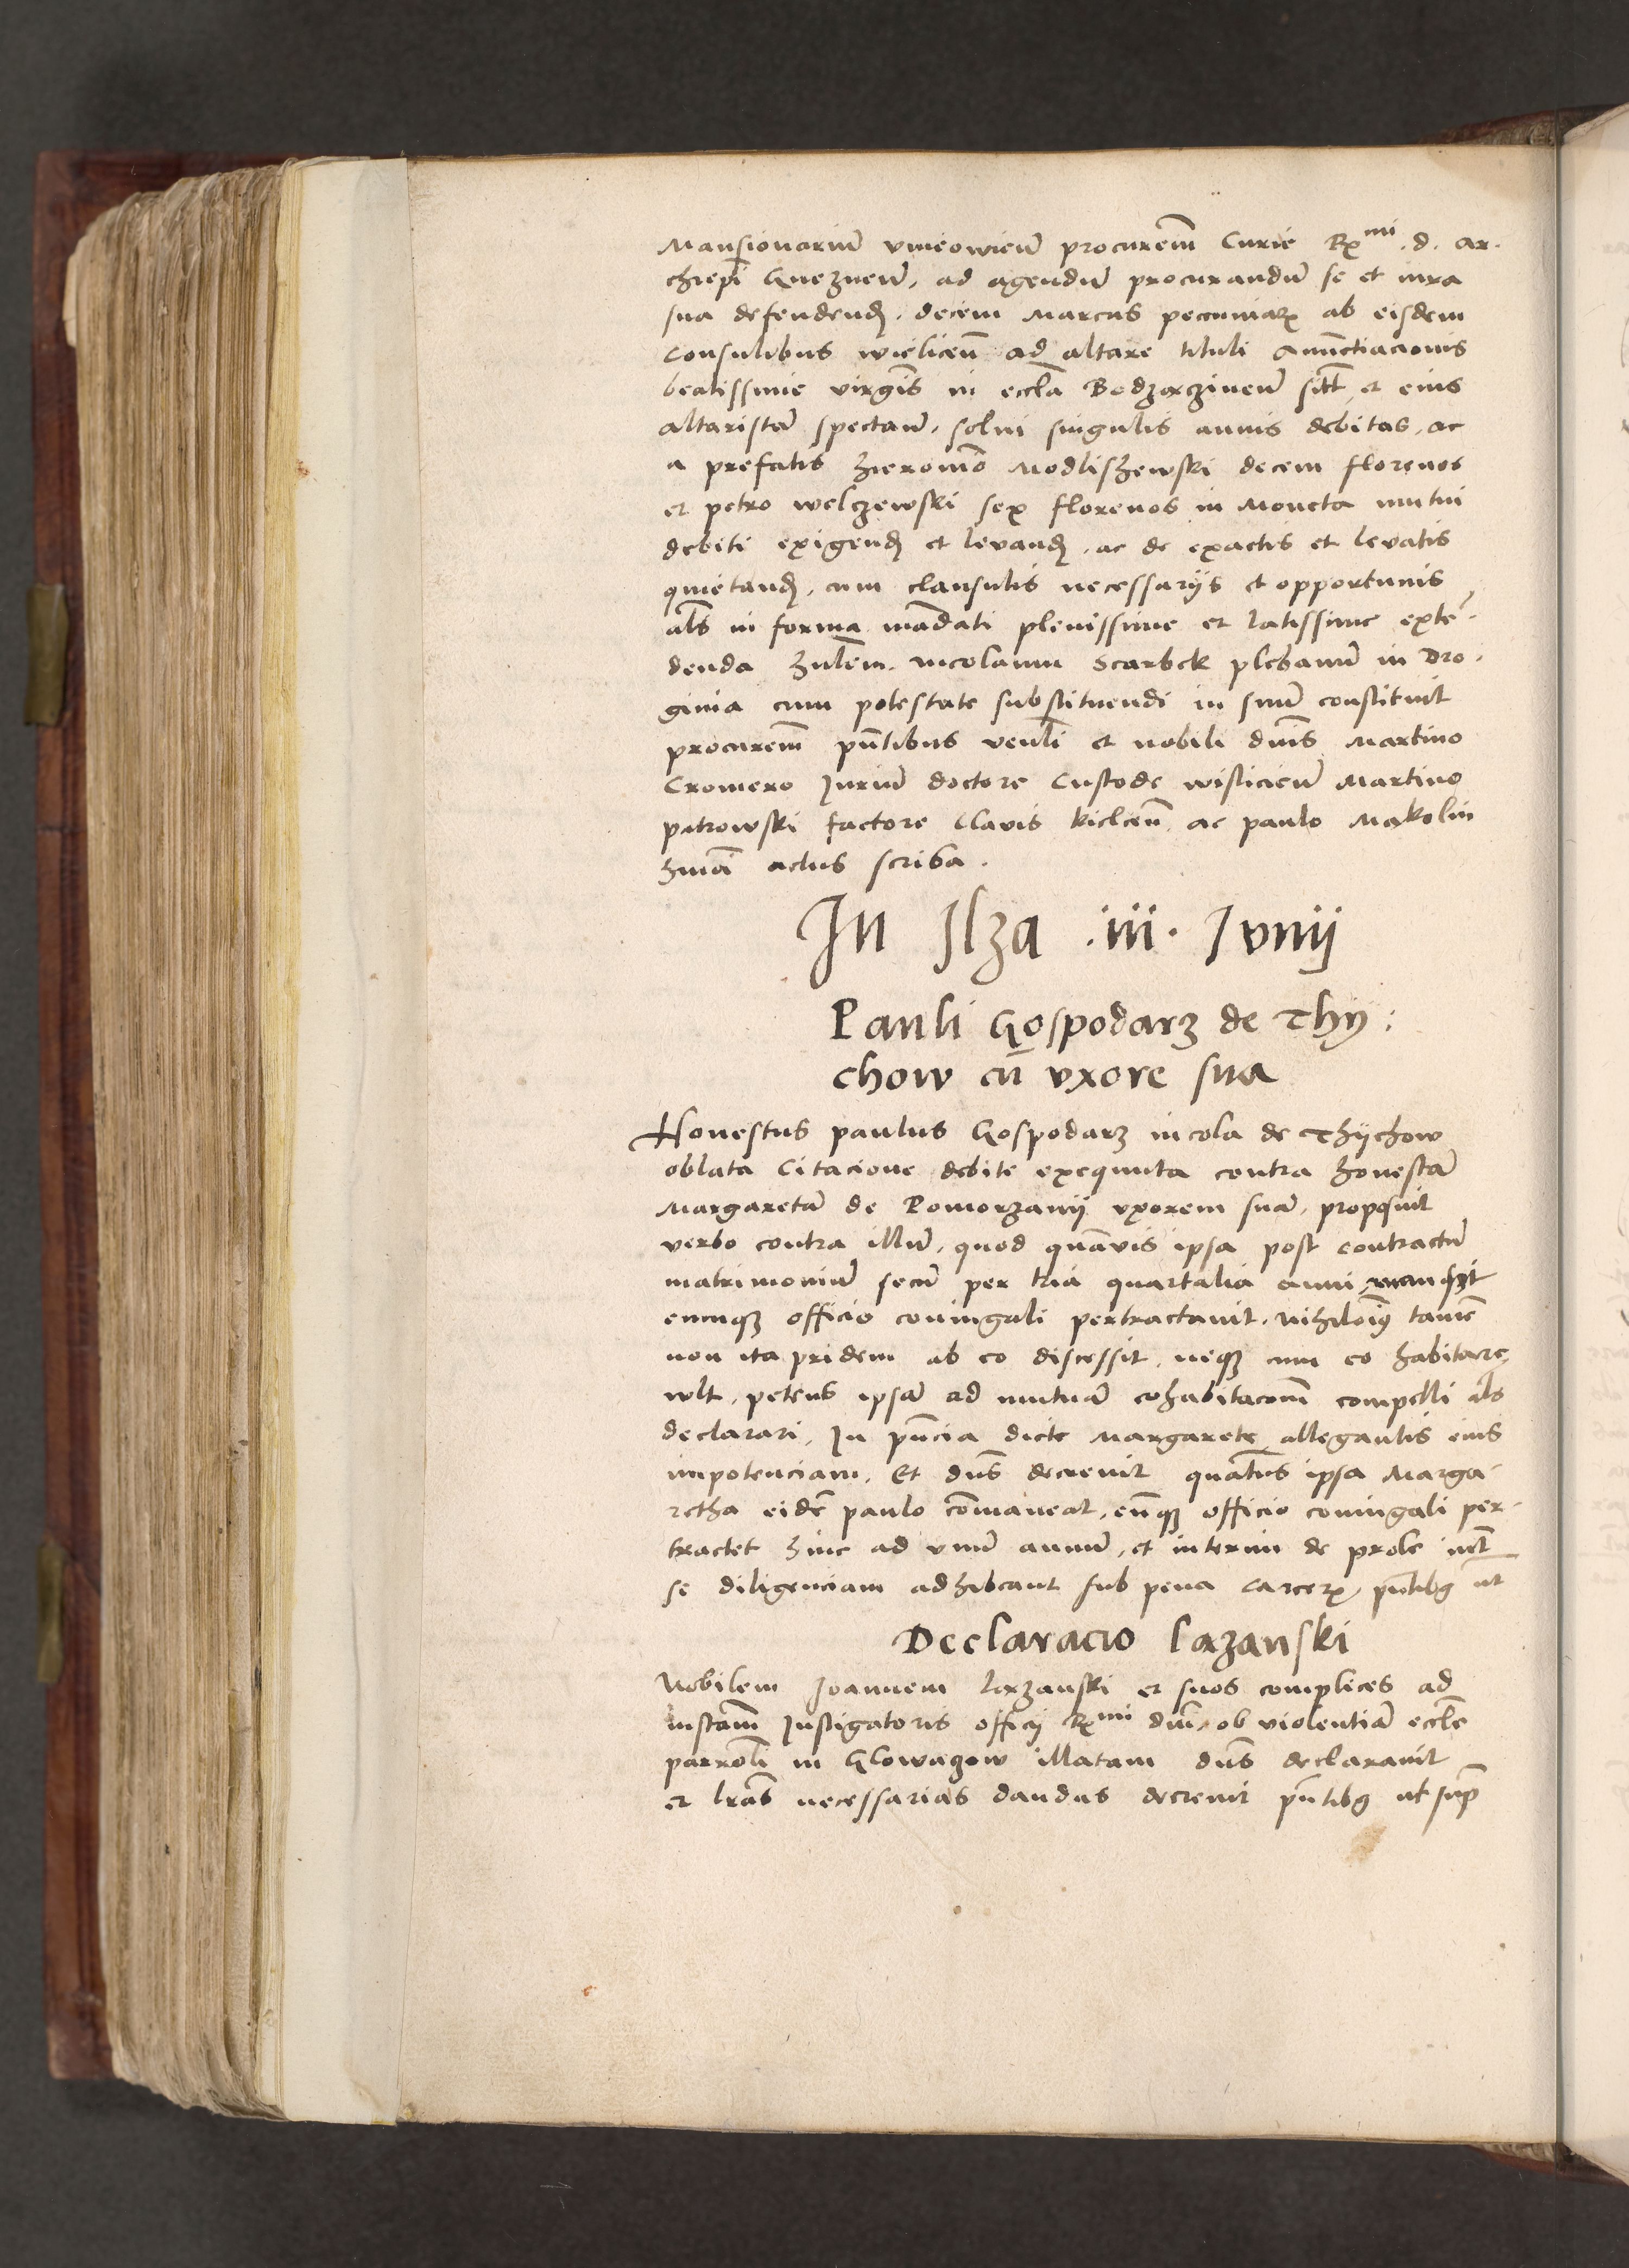 Mansionarium vnieowien̄ procurem̄ Curie Rx^mi. d. ar-
chiepi Gneznen̄, ad agendū procurandū se et iura
sua defendend, decem Marcas pecuniar ab eisdem
Consulibus wielicen̄ ad altare tituli Anunctiacionis
beatissime virgīs in eccla Bodzanczinen̄ sitt et eius
altaristā spectan̄, solui singulis annis debitas, ac
a prefatis hieronimō Modliszewski decem florenos
et petro welczewski sex florenos in Moneta mutui
debiti exigend et levand, ac de exactis et levatis
quietand, cum clausulis necessariis et opportunis
als in forma mādati plenissime et latissime extē-
denda hnlem. nicolaum Scarbek plebanū in Dro-
ginia cum potestate substituendi in suū constituit
procurem̄ pn̄tibus venli et nobili dnīs Martino
Cromero Juriū doctore Custode wislicien̄ Martino
petrowski factore Clavis kielcen̄ ac paulo Makolin
hmōi actus scriba.
In Ilza .iii. Junij
Pauli Gospodarz de Thy:
chow cū vxore sua
Honestus paulus Gospodarz incola de Thychow
oblata Citacione debite exequuta contra honestā
Margaretā de Pomorzany vxorem suā, proposuit
verbo contra illam, quod quāvis ipsa post contractū
matrimoniū secū per tria quartalia anni mansit
eumqz officio coniugali pertractauit, nihilomīg tamē
non ita pridem ab eo discessit, neqz cum eo habitare
wlt, petens ipsā ad mutuā cohabitacōem compelli als
declarari, In pn̄cia dicte Margarete allegantis eius
impotenciam, Et dns decreuit quatus ipsa Marga-
retha eidē paulo cōmaneat, eūqz officio coniugali per-
tractet hinc ad vnū annū, et interim de prole int̄
se diligenciam adhibeant sub pena carcer, pn̄tibg ut
Declaracio lazanski
Nobilem Joannem lazanski et suos complices ad
instam̄ Instigatoris officij Rx^mi dni, ob violentiā eccle
parroli in Glowaczow illatam dns declarauit
et lras necessarias dandas decreuit pn̄tibg ut sup